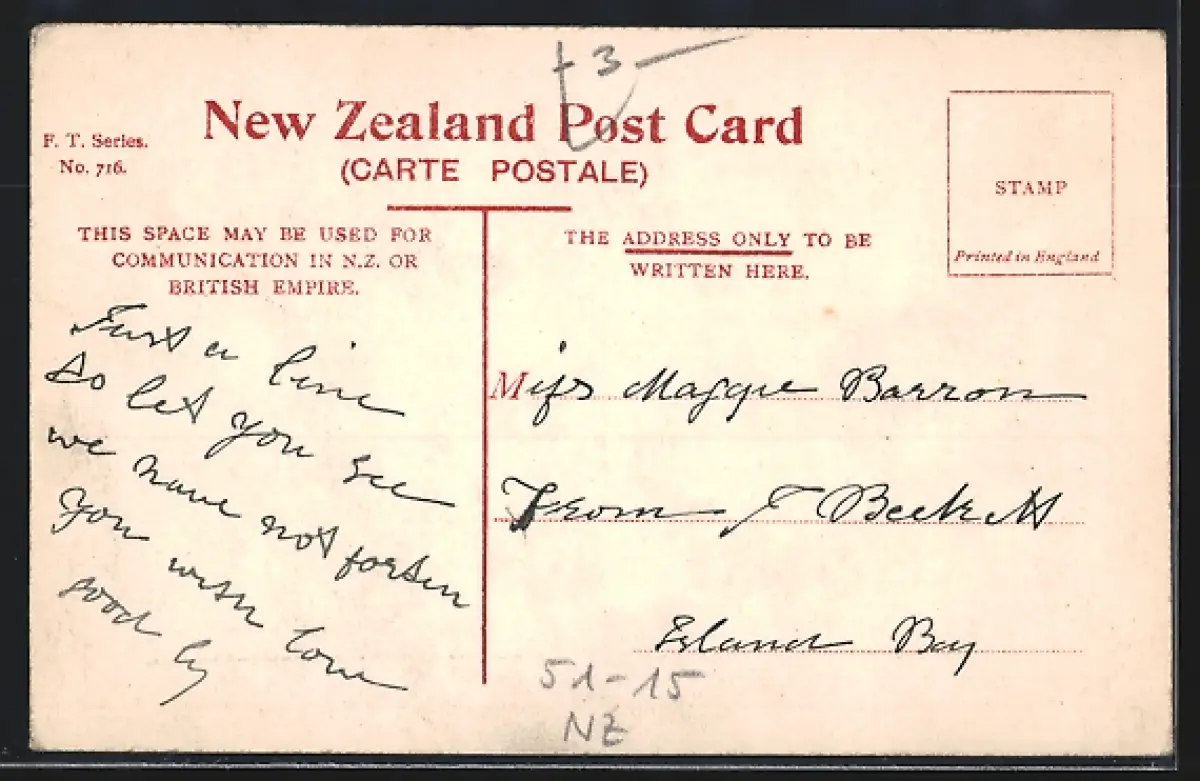 +3—
New Zealand Post Card
(CARTE POSTALE)
F. T. Series.
No. 716.
STAMP
Printed in England
THIS SPACE MAY BE USED FOR
COMMUNICATION IN N.Z. OR
BRITISH EMPIRE.
THE ADDRESS ONLY TO BE
WRITTEN HERE.
Just a line
to let you see
we have not forten
you with love
good by
Miss Maggie Barron
From J Beckett
Island Bay
51-15
NZ